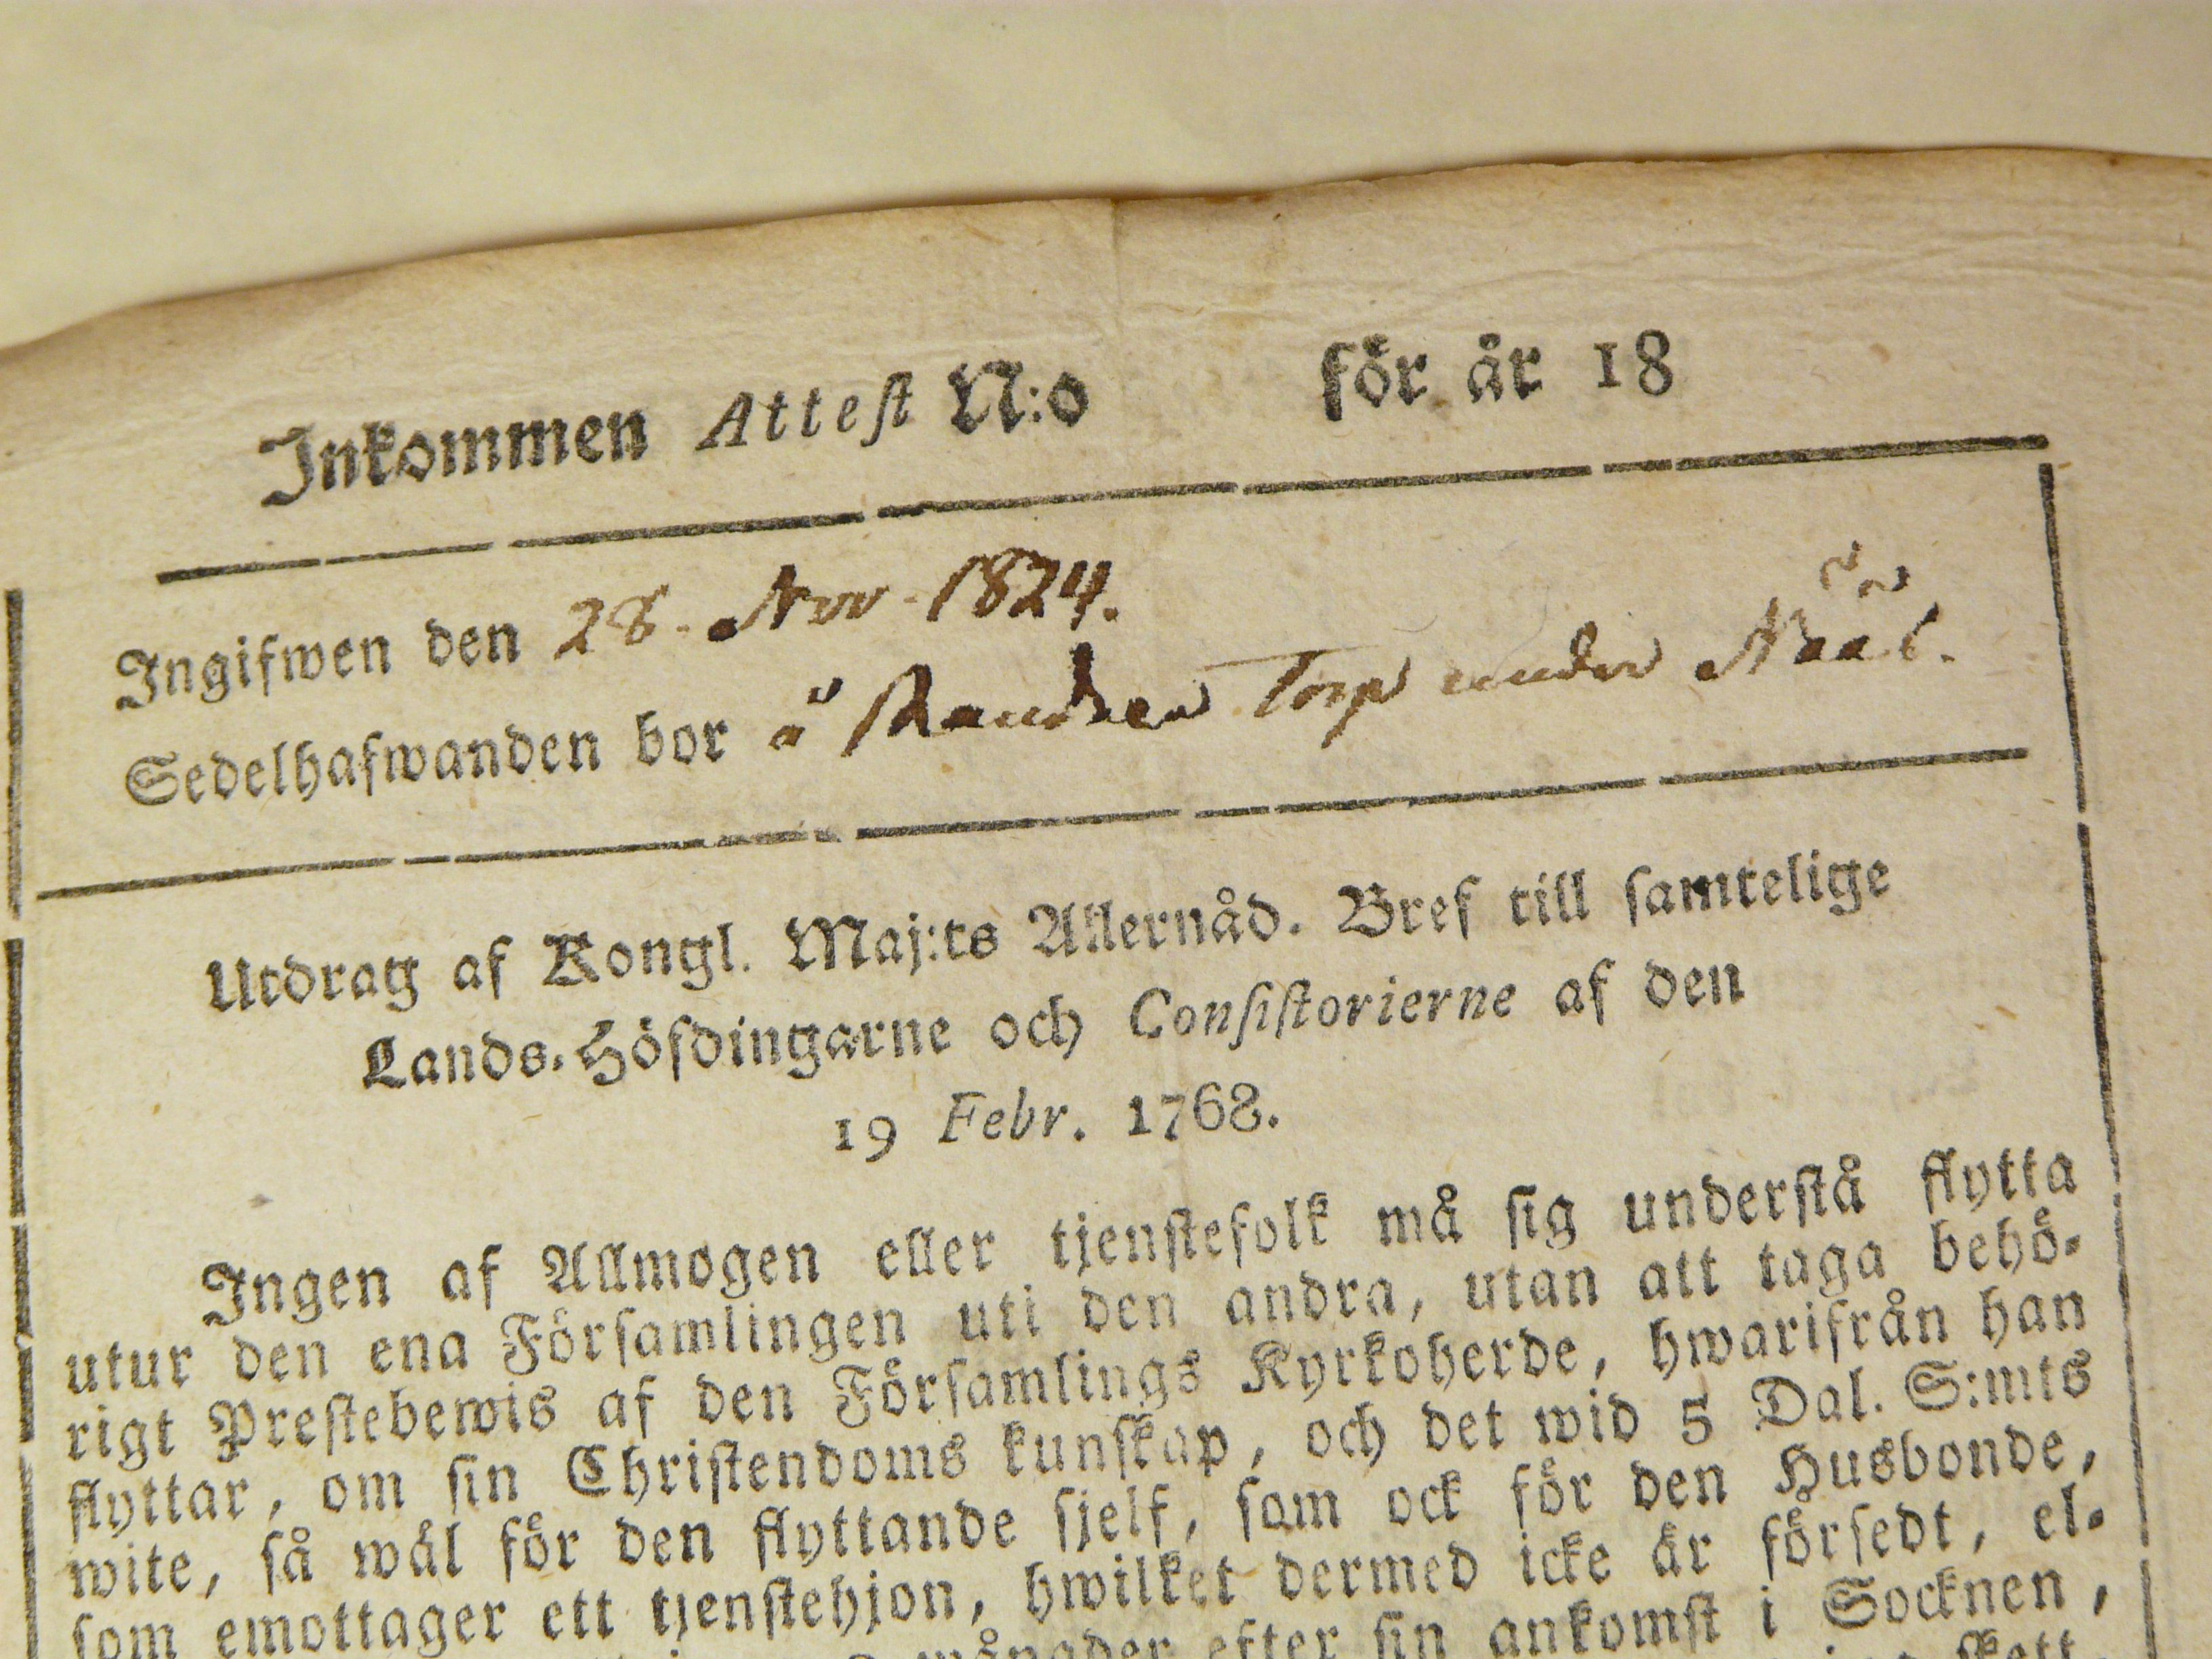 Inkommen Attest N:o för år 18
Ingifwen den 28. Nov. 1824.
Sedelhafwanden bor å Torp under
Utdrag af Kongl. Maj:ts Allernåd. Bref till samtelige
Lands-Höfdingarne och Consistorierne af den
19 Febr. 1768.
Ingen af Allmogen eller tjenstefolk må sig understå flytta
utur den ena Församlingen uti den andra, utan att taga behö-
rigt Prestebewis af den Församlings Kyrkoherde, hwarifrån han
flyttar, om sin Christendoms kunskap, och det wid 5 Dal. S:mts
wite, så wäl för den flyttande sjelf, som ock för den Husbonde,
som emottager ett tjenstehjon, hwilket dermed icke är försedt, el-
månader efter sin ankomst i Socknen,
skett,